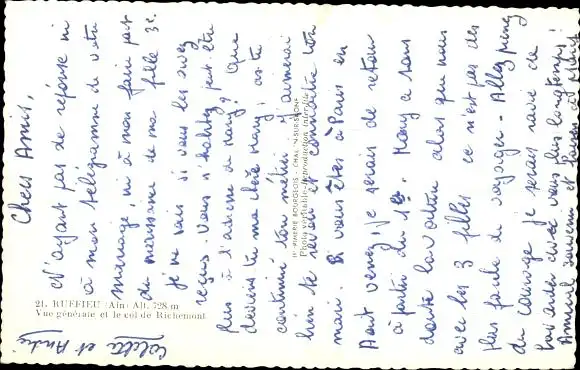 Chers Amis,
N'ayant pas de réponse ni
à mon télégramme de votre
mariage, ni à mon faire part
de naissance de ma fille 3e.
je ne sais si vous les avez
reçus. Vous n'habitez peut être
plus à l'adresse de Nany? Que
deviens tu ma chère Nany, as tu
continué ton métier. J'aimerai
bien te revoir et connaître ton
mari. Si vous êtes à Paris en
Aout venez, je serais de retour
à partir du 1er. Nany a sans
doute la voiture alors que nous
avec les 3 filles ce n'est pas des
plus facile de voyager. Allez prenez
du courage je serais ravie de
bavarder avec vous plus longtemps!
Amical souvenir et bises
Colette et André
21. RUFFIEU (Ain) Alt. 728 m
Vue générale et le col de Richemont
IMPRIMERIE BOURGEOIS - CHALON-SUR-SAONE
Photo véritable - Reproduction interdite